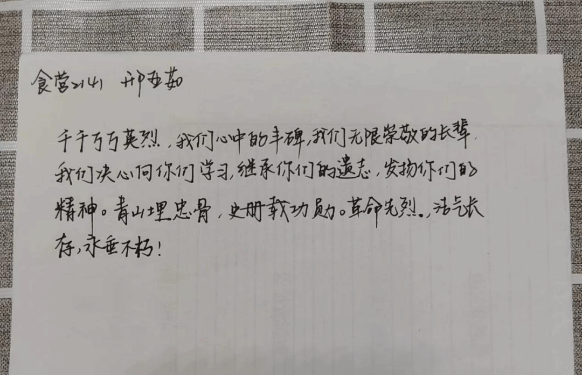 食营2141 邢亚茹
千千万万英烈,我们心中的丰碑,我们无限崇敬的长辈
我们决心向你们学习,继承你们的遗志,发扬你们的
精神。青山埋忠骨,史册载功勋。革命先烈,浩气长
存,永垂不朽!